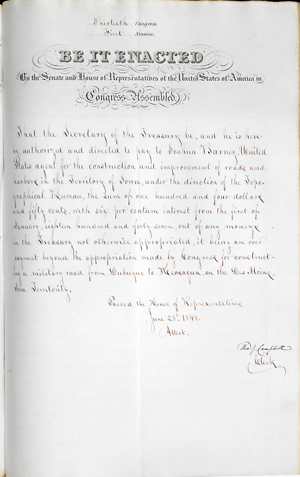 Thirtieth Congress
First Session.
BE IT ENACTED
By the Senate and House of Representatives of the United States of America in
Congress Assembled,
That the Secretary of the Treasury be, and he is here
by authorized and directed to pay to Joshua Barney, United
States agent for the construction and improvement of roads and
harbors in the Territory of Iowa, under the direction of the Topo
graphical Bureau, the sum of one hundred and four dollars
and fifty cents, with six per centum interest from the first of
January, eighteen hundred and forty seven, out of any moneys
in the Treasury not otherwise appropriated, it being an over
payment beyond the appropriation made by Congress for construct-
ing a military road from Dubuque to the
Territority.
Passed the House of Representatives
June 23d 1848.
Attest.
Tho J. Campbell
Clerk